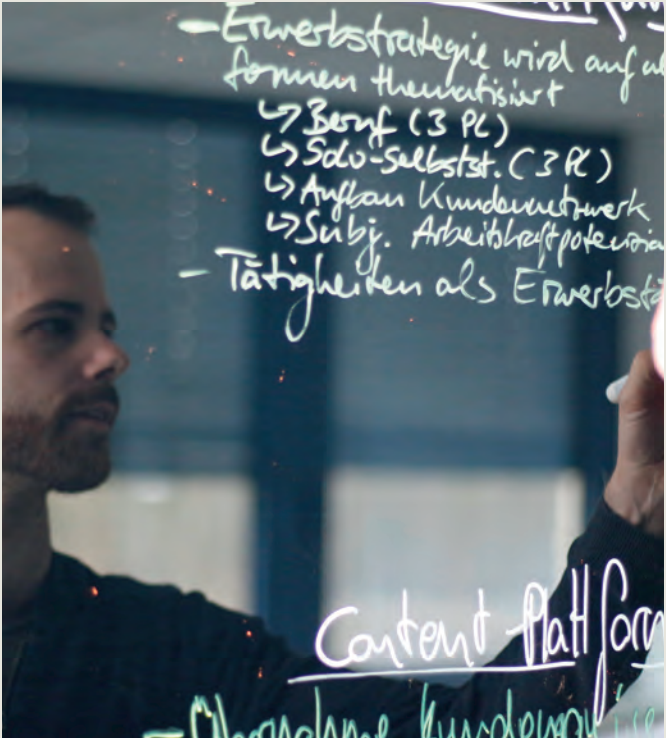 - Erwerbsstrategie wird auf a
formen thematisiert
↳ Beruf (3 Pl)
↳ Solo-Selbstst. (3 Pl)
↳ Aufbau Kundennetzwerk
↳ Subj. Arbeitskraftpotenzia
- Tätigkeiten als Erwerbstä
Content-Plattform
- Übernahme